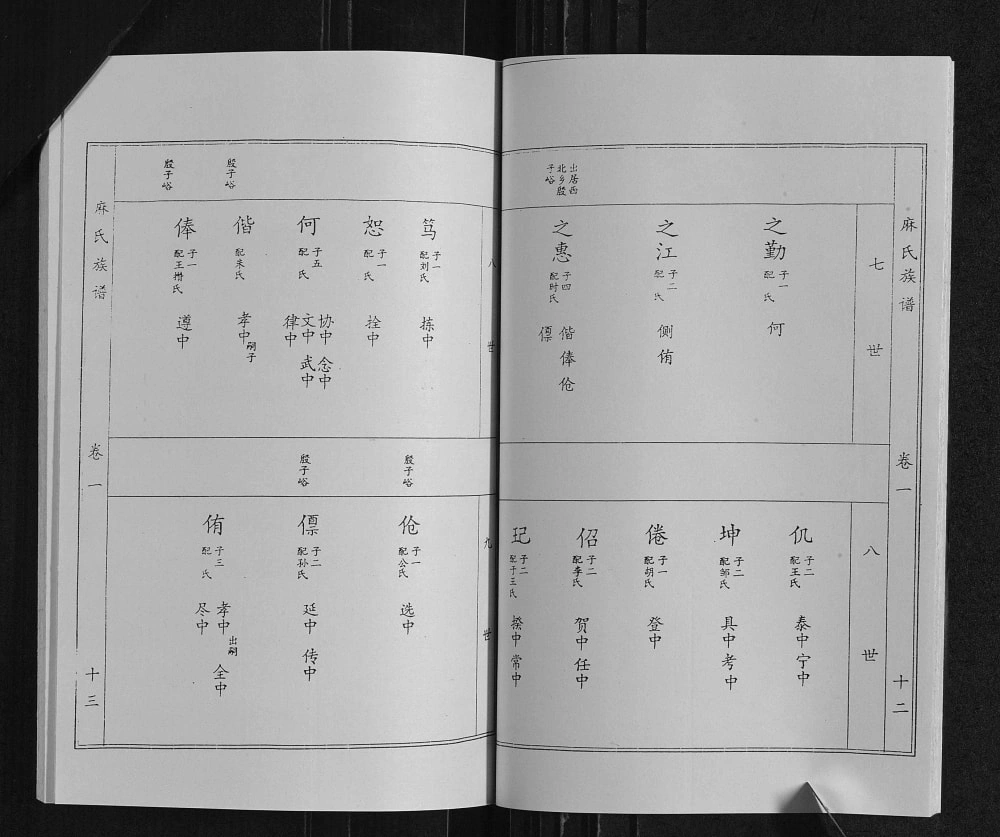 麻氏族谱
卷一
十二
七世
之勤
子一
配 氏
何
之江
子二
配 氏
侧 侑
出居西
北乡殷
子峪
之惠
子四
配时氏
偕 俸 伧
僄
八世
仉
子二
配王氏
泰中 宁中
坤
子二
配邹氏
具中 考中
倦
子一
配胡氏
登中
侣
子二
配李氏
贺中 任中
玘
子二
配于王氏
揆中 常中
八世
笃
子一
配刘氏
拣中
恕
子一
配 氏
拴中
何
子五
配 氏
协中 念中
文中 武中
律中
殷子峪
偕
配朱氏
孝中
嗣子
殷子峪
俸
子一
配王㨗氏
遵中
九世
殷子峪
伧
子一
配公氏
选中
殷子峪
僄
子二
配孙氏
延中 传中
侑
子三
配 氏
孝中
出嗣
全中
尽中
麻氏族谱
卷一
十三